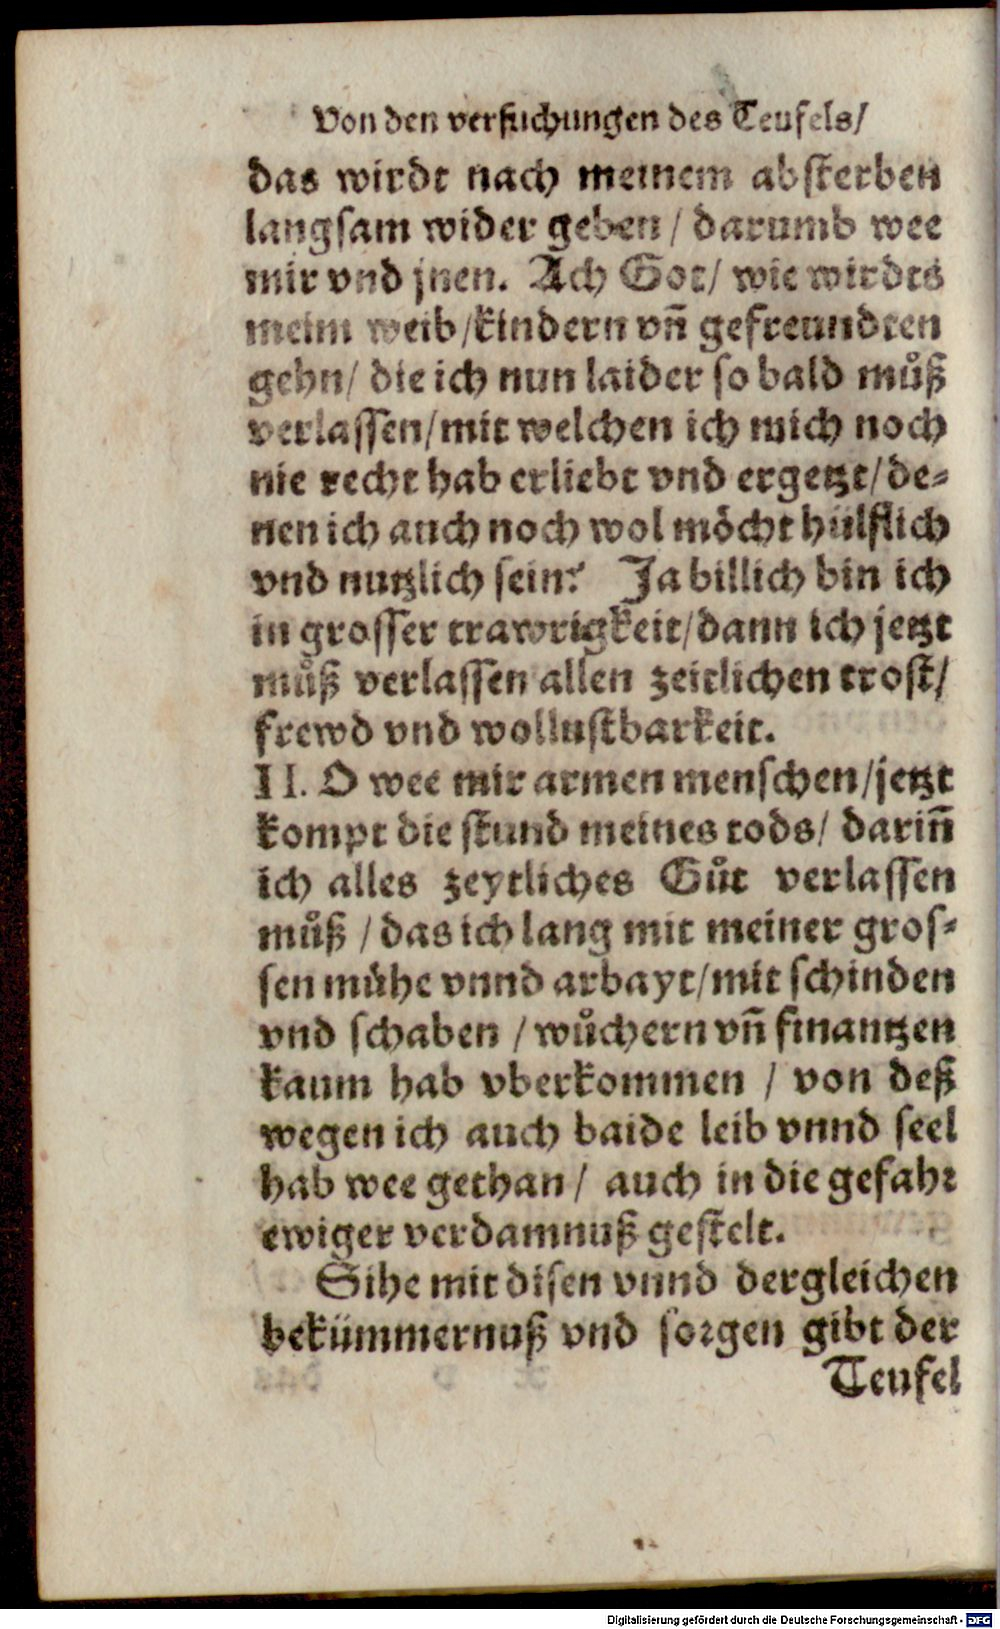 Von den versuchungen des Teufels/
das wirdt nach meinem absterben
langsam wider geben / darumb wee
mir vnd jnen. Ach Got/ wie wirdts
meim weib/kindern vñ gefreundten
gehn/ die ich nun laider so bald můß
verlassen/mit welchen ich mich noch
nie recht hab erliebt vnd ergetzt/de-
nen ich auch noch wol möcht hülflich
vnd nutzlich sein? Ja billich bin ich
in grosser trawrigkeit/dann ich jetzt
můß verlassen allen zeitlichen trost/
frewd vnd wollustbarkeit.
II. O wee mir armen menschen/jetzt
kompt die stund meines tods/ dariñ
ich alles zeytliches Gůt verlassen
můß / das ich lang mit meiner gros-
sen mühe vnnd arbayt/mit schinden
vnd schaben / wůchern vñ finantzen
kaum hab vberkommen / von deß
wegen ich auch baide leib vnnd seel
hab wee gethan / auch in die gefahr
ewiger verdamnuß gestelt.
Sihe mit disen vnnd dergleichen
bekümmernuß vnd sorgen gibt der
Teufel
Digitalisierung gefördert durch die Deutsche Forschungsgemeinschaft - DFG